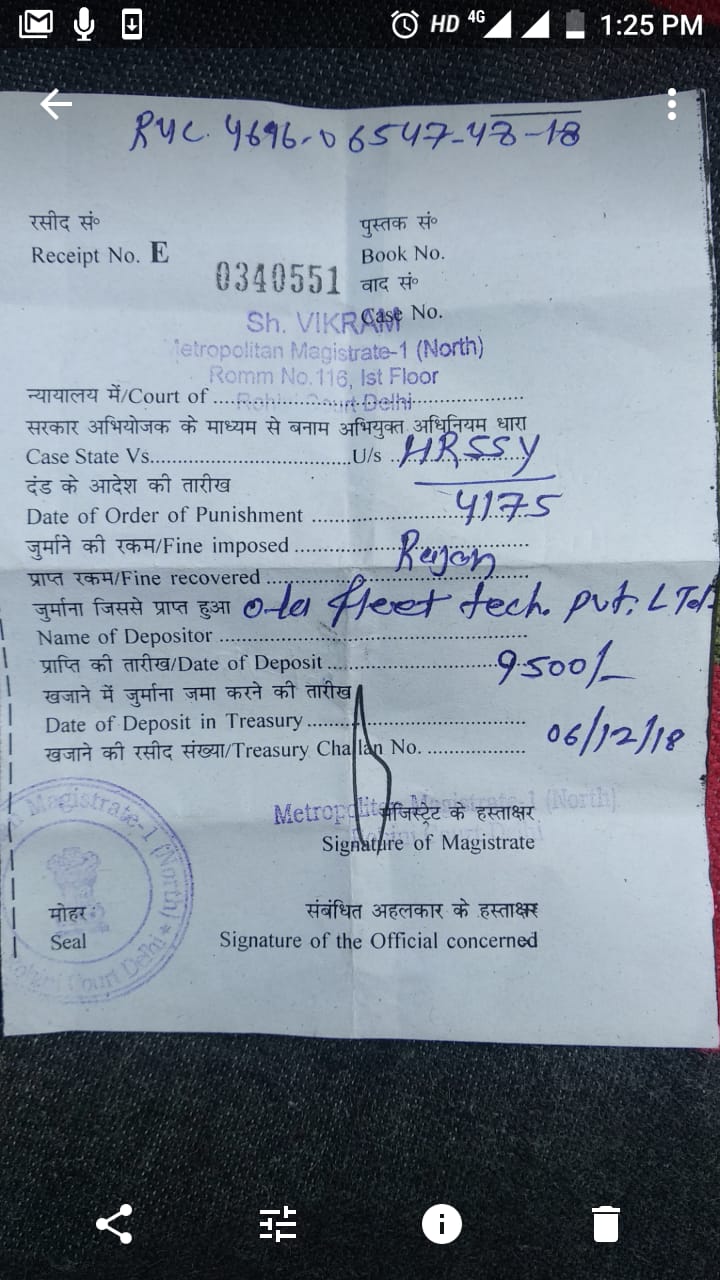 HD 4G 1:25 PM
RYC. 4696-06547-48-18
रसीद सं० पुस्तक सं०
Receipt No. E Book No.
0340551 वाद सं०
Case No.
Sh. VIKRAM
Metropolitan Magistrate-1 (North)
Romm No.116, Ist Floor
न्यायालय में/Court of ....................
Rohini Court Delhi
सरकार अभियोजक के माध्यम से बनाम अभियुक्त अधिनियम धारा
Case State Vs..................................U/s .. HR55Y
दंड के आदेश की तारीख
Date of Order of Punishment .................... 4175
जुर्माने की रकम/Fine imposed .................... Rajan
प्राप्त रकम/Fine recovered ....................
जुर्माना जिससे प्राप्त हुआ ola fleet tech. pvt. LTd.
Name of Depositor ....................
प्राप्ति की तारीख/Date of Deposit .................... 9500/-
खजाने में जुर्माना जमा करने की तारीख
Date of Deposit in Treasury.................... 06/12/18
खजाने की रसीद संख्या/Treasury Challan No. ....................
Metropolitan Magistrate-1 (North)
मजिस्ट्रेट के हस्ताक्षर
Rohini Court Delhi
Signature of Magistrate
Magistrate-1 (North) * Rohini Court Delhi
मोहर संबंधित अहलकार के हस्ताक्षर
Seal Signature of the Official concerned